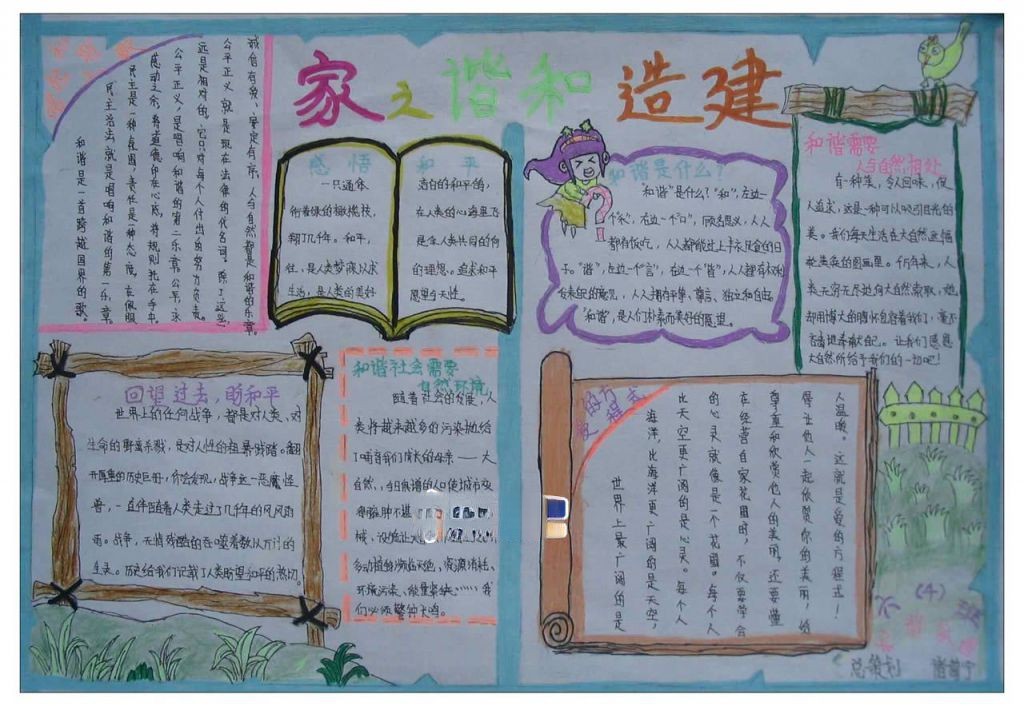 家之谐和造建
诚信有爱、安定有序、人与自然都是和谐的乐章。
公平正义,就是现在法律的代名词。除了这些,永
远是相对的,它只对每个人付出的努力负责。
公平正义,是唱响和谐的第二乐章。公平,永
感动之余,将道德印在心底,将规则托在手中。
民主是一种氛围,责任是一种态度,在佩服
民主法治,就是唱响和谐的第一乐章。
和谐是一首跨越国界的歌。
感悟和平
一只通体
洁白的和平鸽,
衔着绿的橄榄枝,
在人类的心海里飞
翔了几千年。和平,
是全人类共同的向
往,是人类梦寐以求
的理想。追求和平
生活,是人类的美好
愿望与天性。
和谐是什么?
“和谐”是什么?“和”,左边一
个“禾”,右边一个“口”,顾名思义,人人
都有饭吃,人人都能过上丰衣足食的日
子。“谐”,左边一个“言”,右边一个“皆”,人人都有权利
发表您的意见,人人拥有平等、尊言、独立和自由。
“和谐”,是人们朴素而美好的愿望。
和谐需要
人与自然相处
有一种美,令人回味,使
人追求,这是一种可以吸引目光的
美。我们每天生活在大自然这幅
乾美奂的图画里。千万年来,人
类无穷无尽地向大自然索取,她
却用博大的胸怀包容着我们,毫不
吝啬地奉献自己。让我们感恩
大自然所给予我们的一切吧!
回望过去,盼和平
世界上的任何战争,都是对人类、对
生命的野蛮杀戮,是对人性的粗暴践踏。翻
开厚重的历史巨册,你会发现,战争这一恶魔怪
兽,一直伴随着人类走过了几千年的风风雨
雨。战争,无情残酷的吞噬着数以万计的
生灵。历史给我们记载了人类盼望和平的热切。
和谐社会需要
自然环境
随着社会的发展,人
类将越来越多的污染抛给
了哺育我们成长的母亲——大
自然,今日食谱的人口使城市变
得臃肿不堪
械,设施让大
多动植物濒临灭绝,资源消耗、
环境污染、能量紧缺……我
们必须警钟长鸣。
爱的方程式
人温暖。这就是爱的方程式!
得让他人一起欣赏你的美丽,给
尊重和欣赏他人的美丽,还要懂
在经营自家花园时,不仅要学会
的心灵就像是一个花园。每个人
比天空更广阔的是心灵。每个人
海洋,比海洋更广阔的是天空,
世界上最广阔的是
六(4)班
总策划